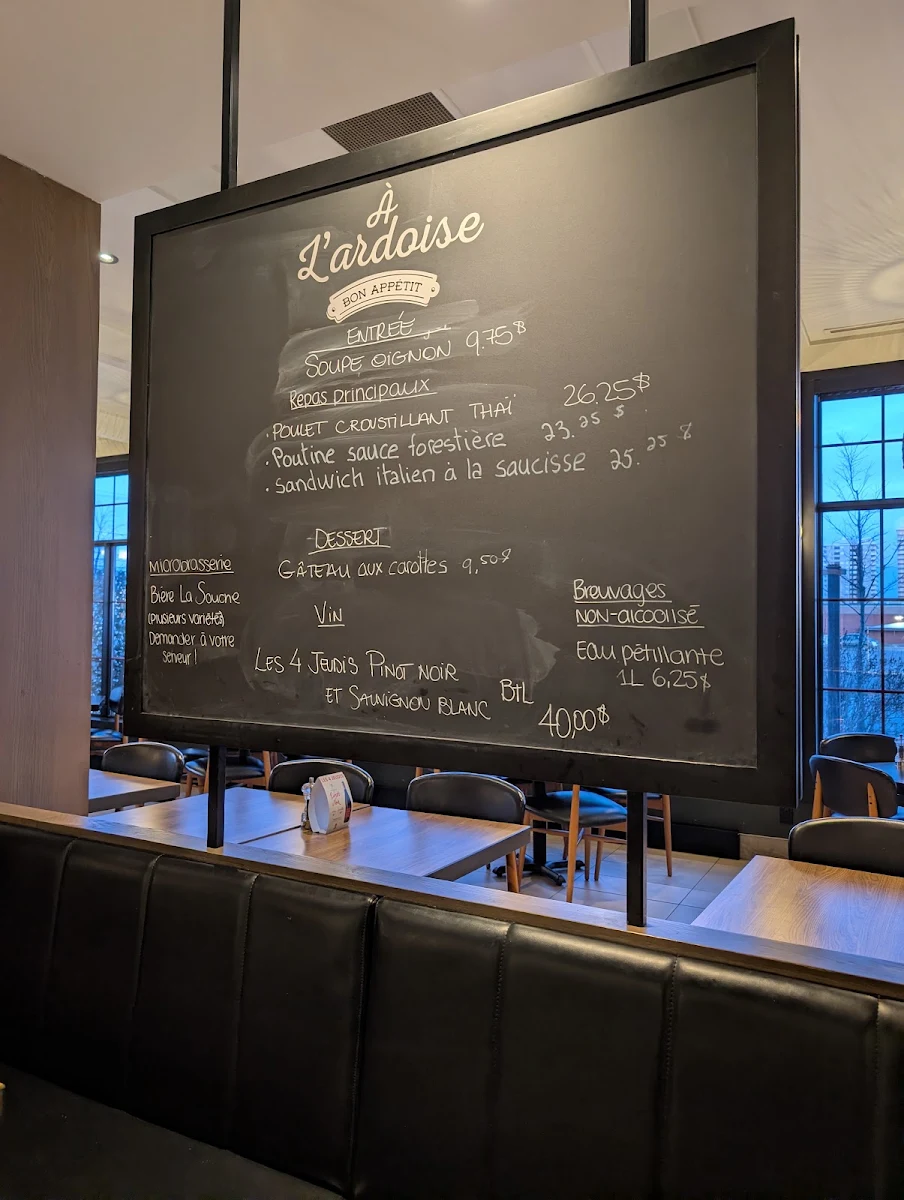 À
L'ardoise
BON APPÉTIT
ENTRÉE
SOUPE OIGNON 9.75$
Repas principaux
• POULET CROUSTILLANT THAÏ 26,25$
• Poutine sauce forestière 23.25$
• Sandwich italien à la saucisse 25.25$
DESSERT
GÂTEAU aux carottes 9,50$
Microbrasserie
Bière La Souche
(plusieurs variétés)
Demander à votre
serveur!
Vin
LES 4 JEUDIS PINOT NOIR
ET SAUVIGNON BLANC BtL
40,00$
Breuvages
NON-alcoolisé
Eau pétillante
1L 6,25$